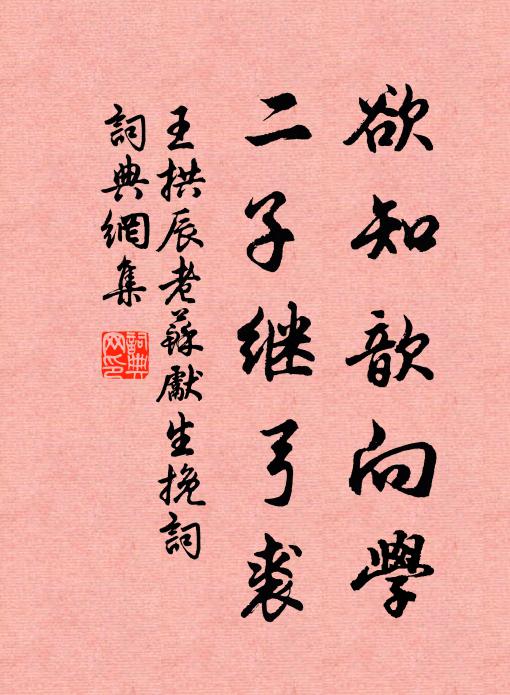 欲知歆向學
二子继弓裘
王拱辰老蘇獻生挽詞
詞典網集
詞典网印